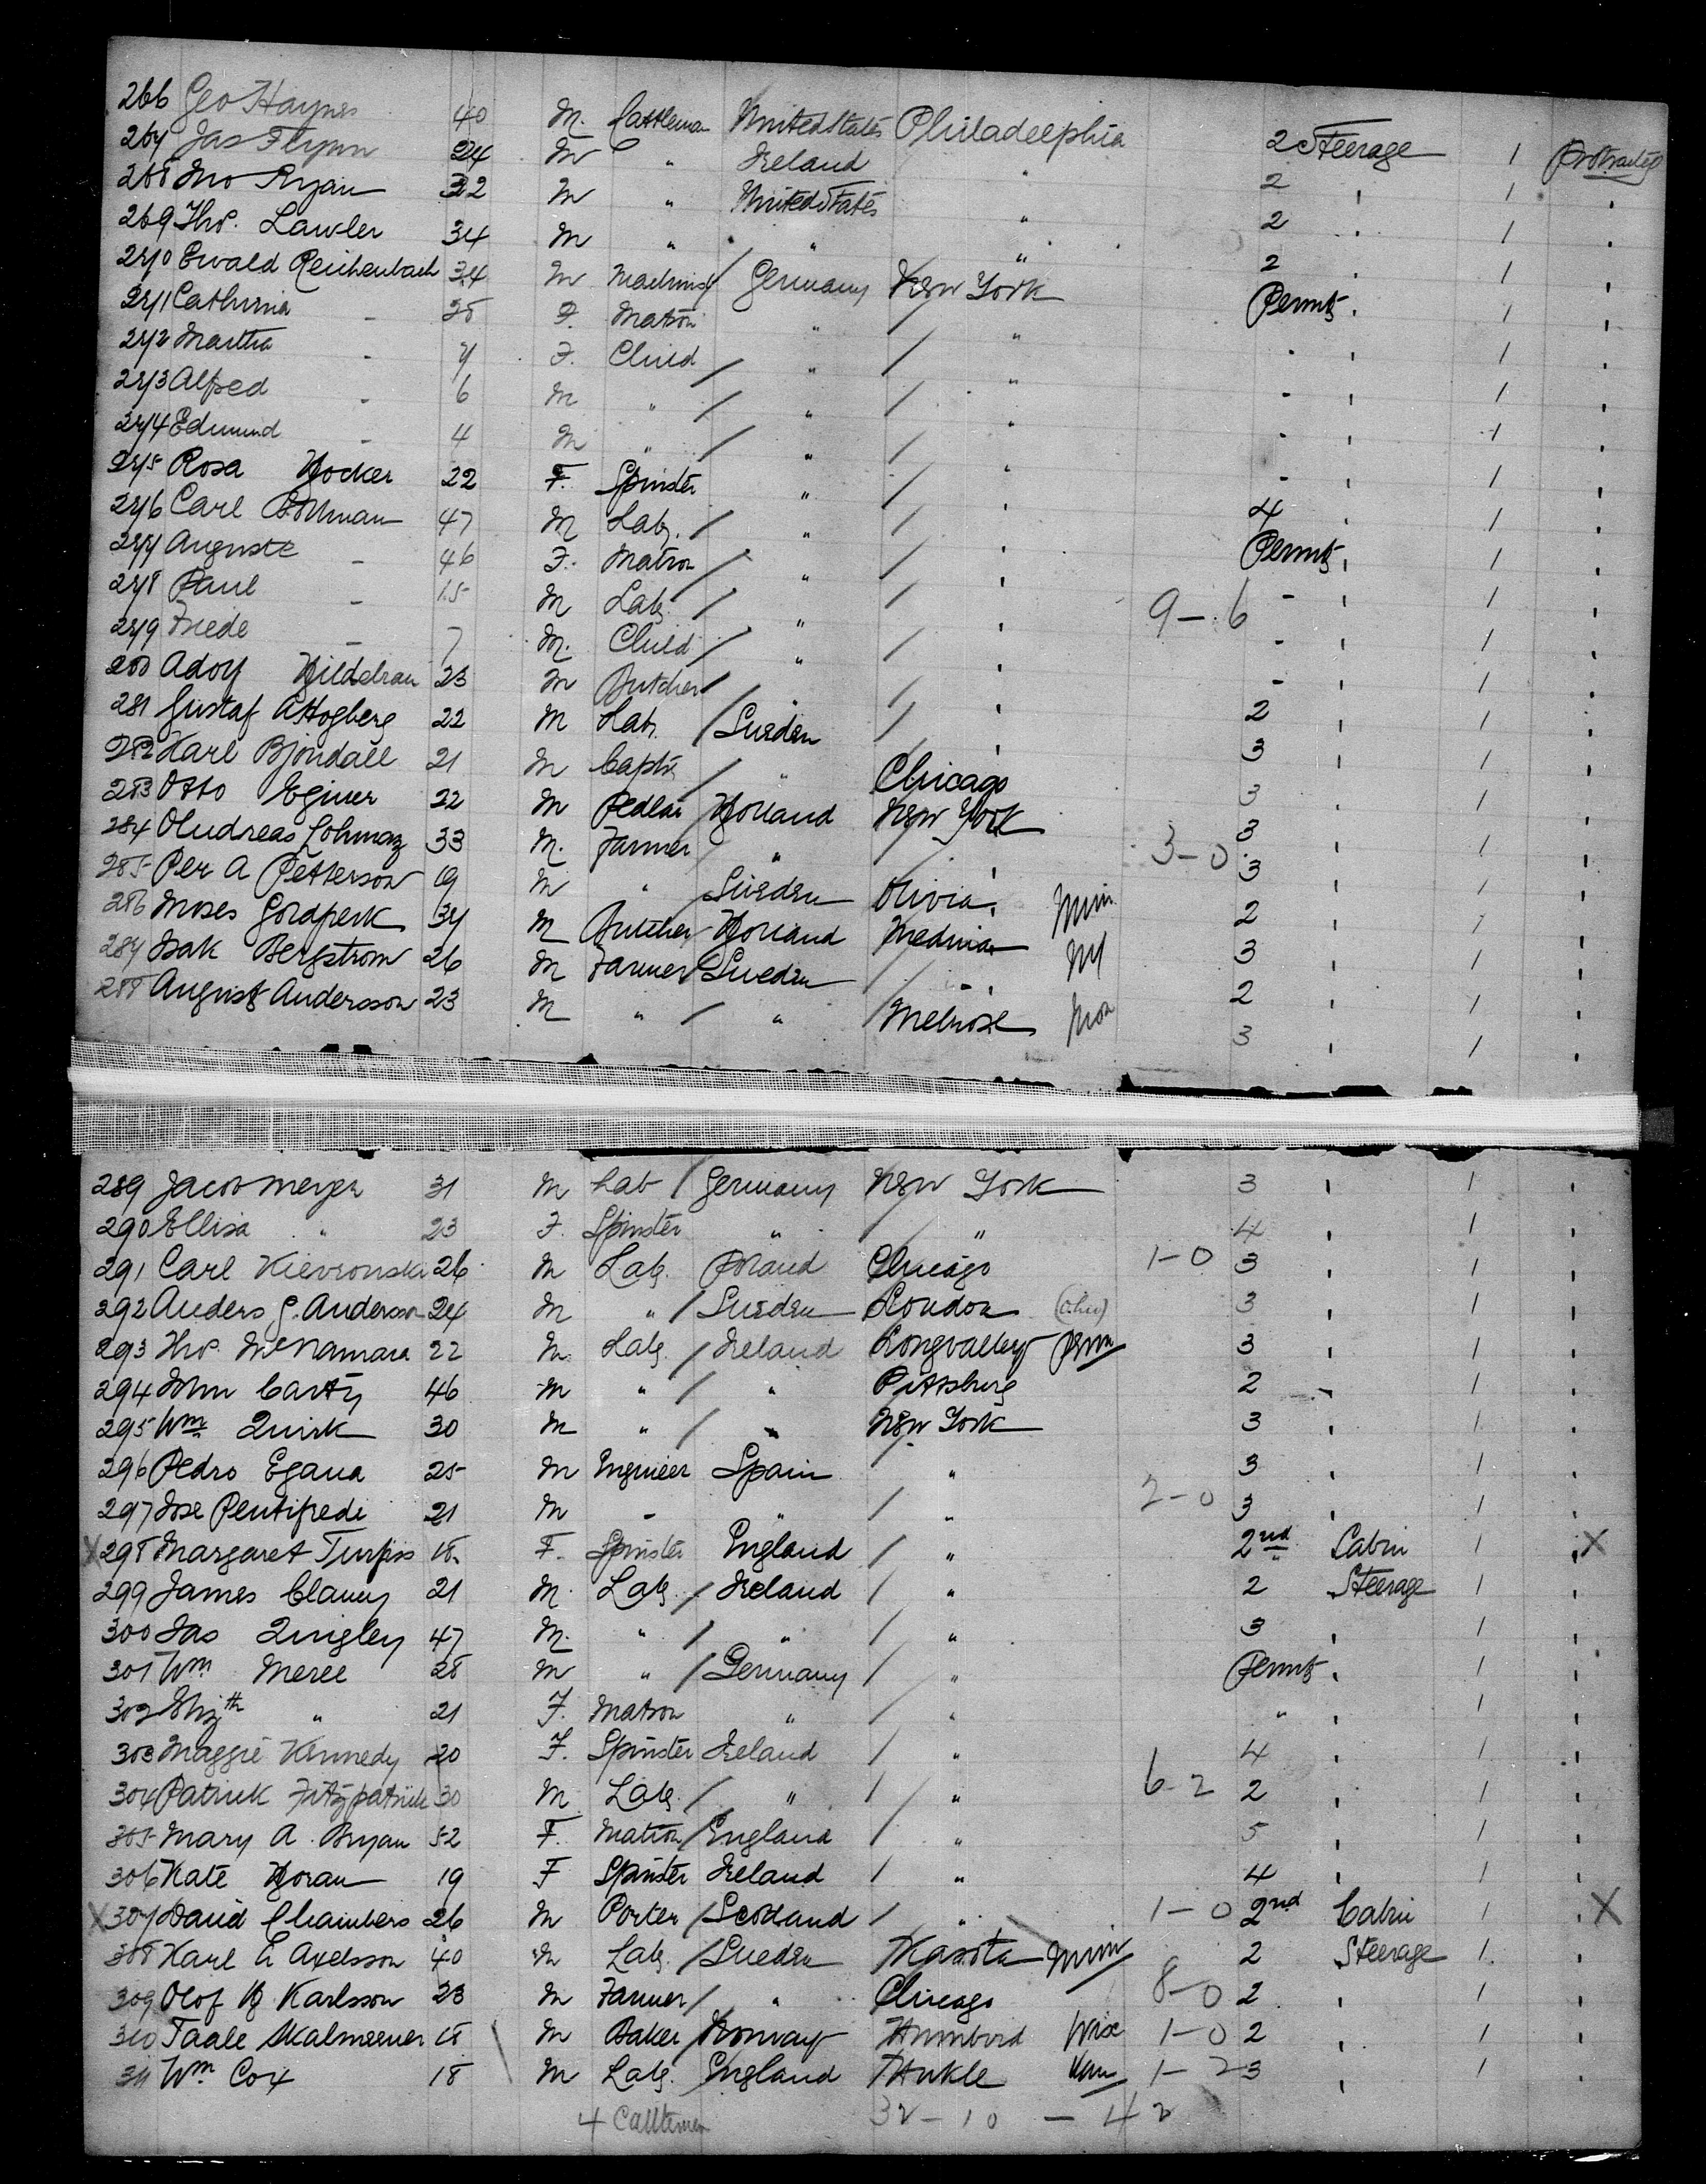 266 Geo Haynes 40 M. Cattleman United States Philadelphia 2 Steerage 1 Protracted
267 Jas Flynn 24 M " Ireland " 2 " 1 "
268 Jno Ryan 32 M " United States " 2 " 1 "
269 Thos. Lawler 34 M " " " 2 " 1 "
270 Ewald Reichenbach 34 M Machinist / Germany New York Permt. " 1 "
271 Cathrina - 28 F. Matron " / " - " 1 "
272 Martha - 7 F. Child / " / " - " 1 "
273 Alfred - 6 M " / " / " - " 1 "
274 Edmund - 4 M " / " / " - " 1 "
275 Rosa Hocker 22 F. Spinster " / " 4 " 1 "
276 Carl 47 M Labr. / " / " Permt. " 1 "
277 Auguste - 46 F. Matron / " / " - " 1 "
278 Paul - 15 M Labr. / " / " 9-6 - " 1 "
279 Friede - 7 M. Child / " / " - " 1 "
280 Adolf 23 M Butcher / " / " 2 " 1 "
281 Gustaf A Hogberg 22 M Labr. / Sweden / " 3 " 1 "
282 Karl Bjondall 21 M / " Chicago 3 " 1 "
283 Otto 22 M Pedlar / Holland New York 3 " 1 "
284 33 M. Farmer / " / " 3-0 3 " 1 "
285 Per A Petterson 19 M " Sweden Olivia. Min 2 " 1 "
286 Moses 37 M Butcher Holland Medina NY 3 " 1 "
287 Isak Bergstrom 26 M Farmer / Sweden / " 2 " 1 "
288 August Andersson 23 M " / " / Melrose 3 " 1 "
289 Jacob Meyer 31 M Lab / Germany New York 3 " 1 "
290 Ellisa " 23 F. Spinster " / " 4 " 1 "
291 Carl 26 M Labr. Poland Chicago 1-0 3 " 1 "
292 Anders G. Anderson 24 M " / Sweden London (Ohio) 3 " 1 "
293 Thos. McNamara 22 M Labr. / Ireland Longvalley Penn 3 " 1 "
294 John Carty 46 M " / " Pittsburg 2 " 1 "
295 Wm Quirk 30 M " / " New York 3 " 1 "
296 Pedro Egana 25 M Engineer Spain / " 3 " 1 "
297 Jose 21 M - " / " 2-0 3 " 1 "
X 298 Margaret 18. F. Spinster England / " 2nd Cabin 1 " X
299 James Clancy 21 M. Labr. / Ireland / " 2 Steerage 1 "
300 Jas Quigley 47 M. " / " / " 3 " 1 "
301 Wm 28 M " / Germany / " Permt. " 1 "
302 Elizth " 21 F. Matron " / " " " 1 "
303 Maggie Kennedy 20 F. Spinster Ireland / " 4 " 1 "
304 Patrick Fitzpatrick 30 M Labr. / " / " 6-2 2 " 1 "
305 Mary A. Bryan 52 F. Matron / England / " 5 " 1 "
306 Kate Horan 19 F Spinster Ireland / " 4 " 1 "
X 307 David Chambers 26 M Porter / Scotland / " 1-0 2nd Cabin 1 " X
308 Karl E Axelsson 40 M Labr. / Sweden Kasota Min 2 Steerage 1 "
309 Olof Karlsson 23 M Farmer / " Chicago 8-0 2 " 1 "
310 18 M Baker / Norway Wisc 1-0 2 " 1 "
311 Wm Cox 18 M Labr. England 1-2 3 " 1 "
4 Cattlemen 32-10-42